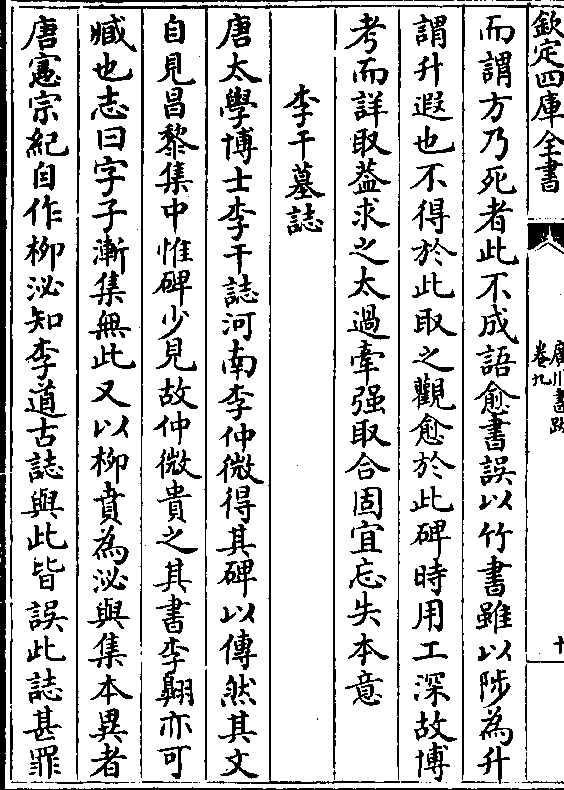 欽定四庫全書
廣川書跋
卷九
十
而謂方乃死者此不成語愈書誤以竹書雖以陟為升
謂升遐也不得於此取之觀愈於此碑時用工深故博
考而詳取葢求之太過牽强取合固宜忘失本意
李干墓誌
唐太學博士李干誌河南李仲微得其碑以傳然其文
自見昌黎集中惟碑少見故仲微貴之其書李翺亦可
臧也志曰字子漸集無此又以柳賁為泌與集本異者
唐憲宗紀自作柳泌知李道古誌與此皆誤此誌甚罪